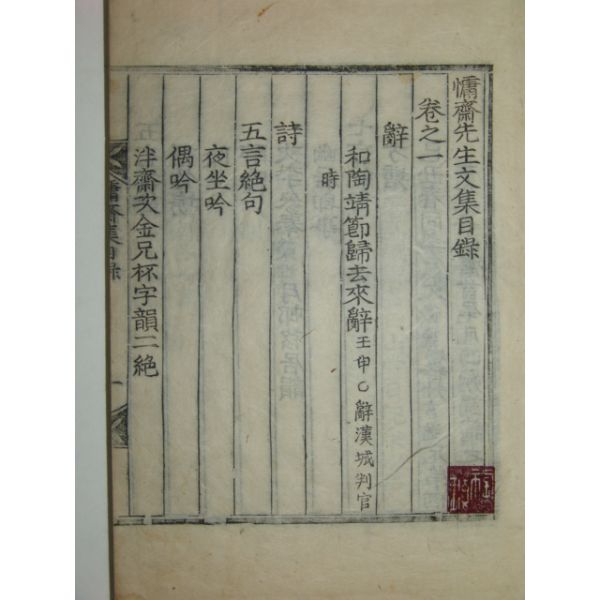 慵齋先生文集目錄
卷之一
辭
和陶靖節歸去來辭 壬申乞辭漢城判官
時
詩
五言絶句
夜坐吟
偶吟
泮齋次金兄杯字韻二絶
慵齋集目錄